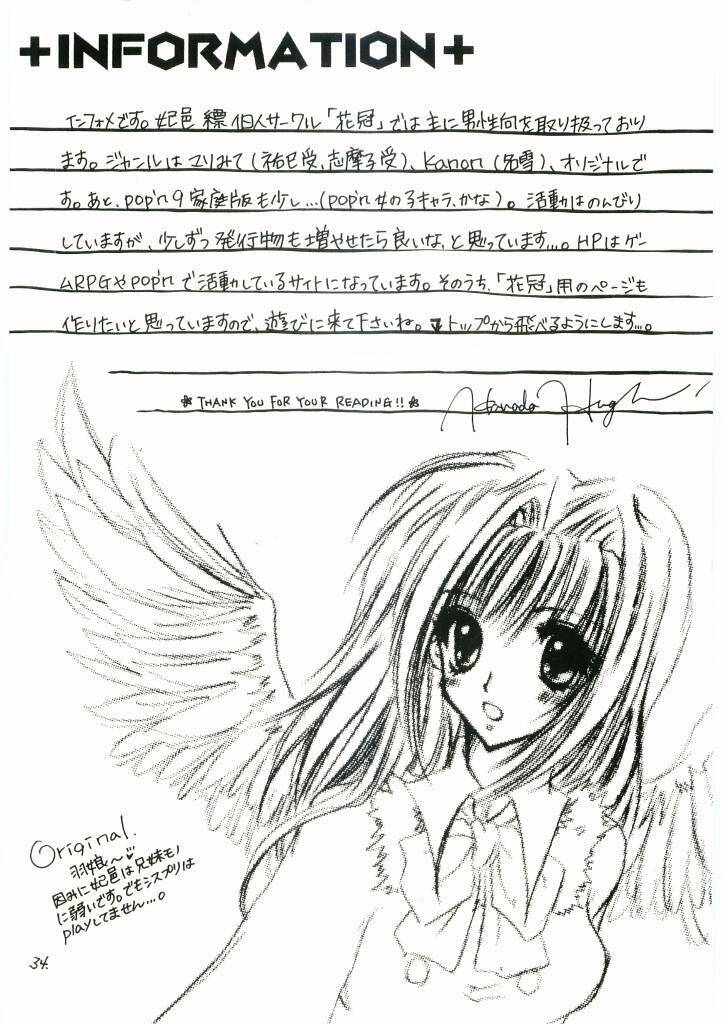 +INFORMATION+
インフォメです。妃邑 縹 個人サークル「花冠」では主に男性向を取り扱っており
ます。ジャンルはマリみて(祐巳受、志摩子受)、Kanon(名雪)、オリジナルで
す。あと、pop'n 9 家庭版も少し…(pop'n 女の子キャラ、かな)。活動はのんびり
していますが、少しずつ発行物も増やせたら良いな、と思っています…。HPはゲー
ムRPGやpop'nで活動しているサイトになっています。そのうち、「花冠」用のページも
作りたいと思っていますので、遊びに来て下さいね。トップから飛べるようにします…。
THANK YOU FOR YOUR READING!!
Original.
羽娘〜
因みに妃邑は兄妹モノ
に弱いです。でもシスプリは
playしてません…。
34.